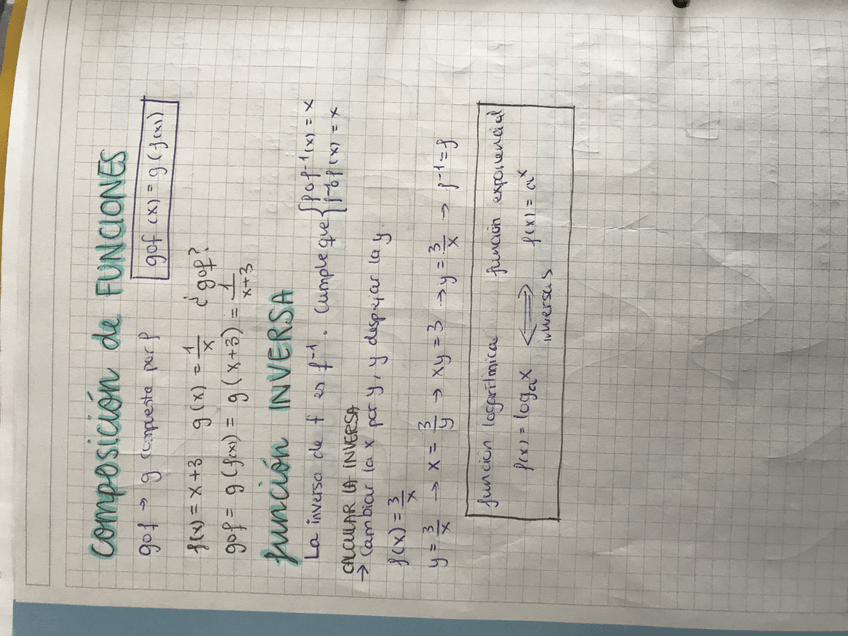 composición de FUNCIONES
gof → g compuesta por f
gof (x) = g (f(x))
f(x) = x+3 g(x) = 1/x ¿gof?
gof = g(f(x)) = g(x+3) = 1/x+3
función INVERSA
La inversa de f es f⁻¹. Cumple que { fof⁻¹(x) = x
f⁻¹of(x) = x
CALCULAR LA INVERSA
→ Cambiar la x por y, y despejar la y.
f(x) = 3/x
y = 3/x → x = 3/y → xy = 3 → y = 3/x → f⁻¹ = f
función logarítmica función exponencial
f(x) = logₐx ⟺ f(x) = aˣ
inversas